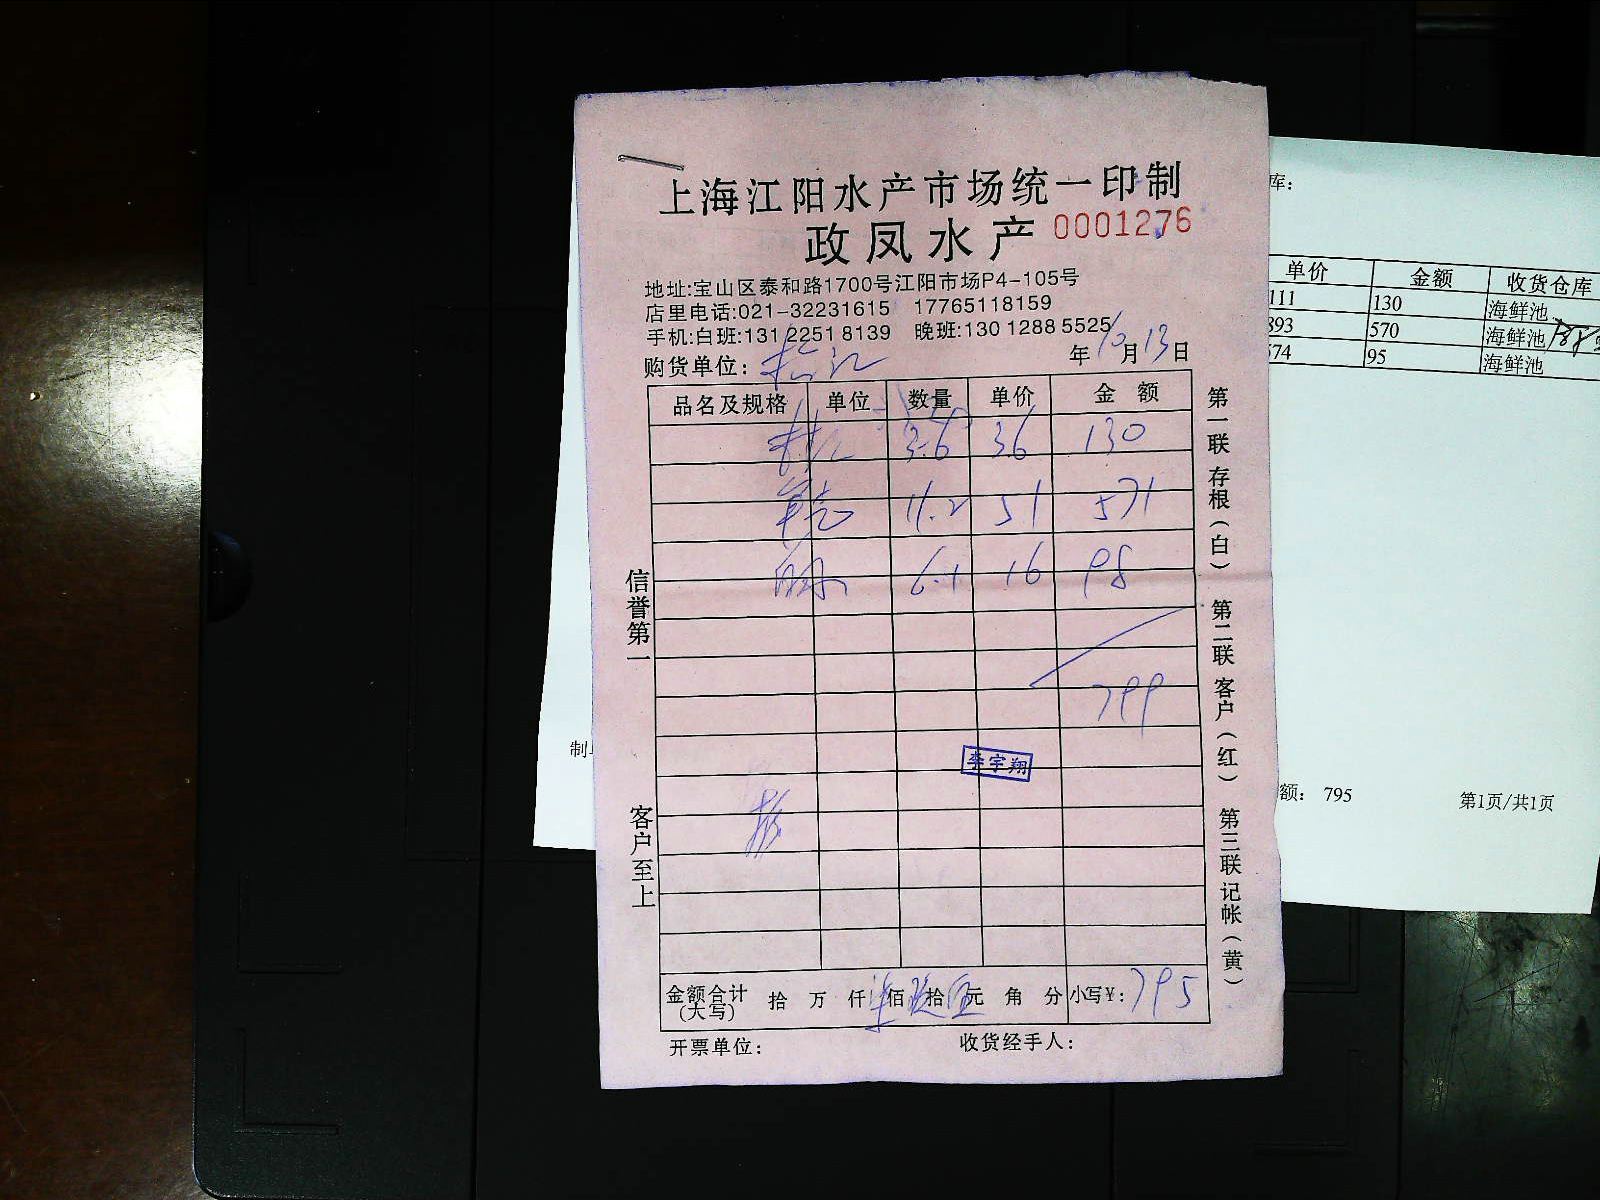 上海江阳水产市场统一印制
政凤水产 0001276
地址:宝山区泰和路1700号江阳市场P4-105号
店里电话:021-32231615 17765118159
手机:白班:131 2251 8139 晚班:130 1288 5525
购货单位: 年10月13日
品名及规格 单位 数量 单价 金额
3.6 36 130
11.2 51 571
6.1 16 98
799
李宇翔
金额合计(大写) 拾 万 仟 佰 拾 伍 元 角 分 小写¥: 795
开票单位: 收货经手人:
信誉第一
客户至上
第一联 存根(白) 第二联 客户(红) 第三联 记帐(黄)
库:
单价 金额 收货仓库
111 130 海鲜池
893 570 海鲜池
574 95 海鲜池
制
额: 795
第1页/共1页